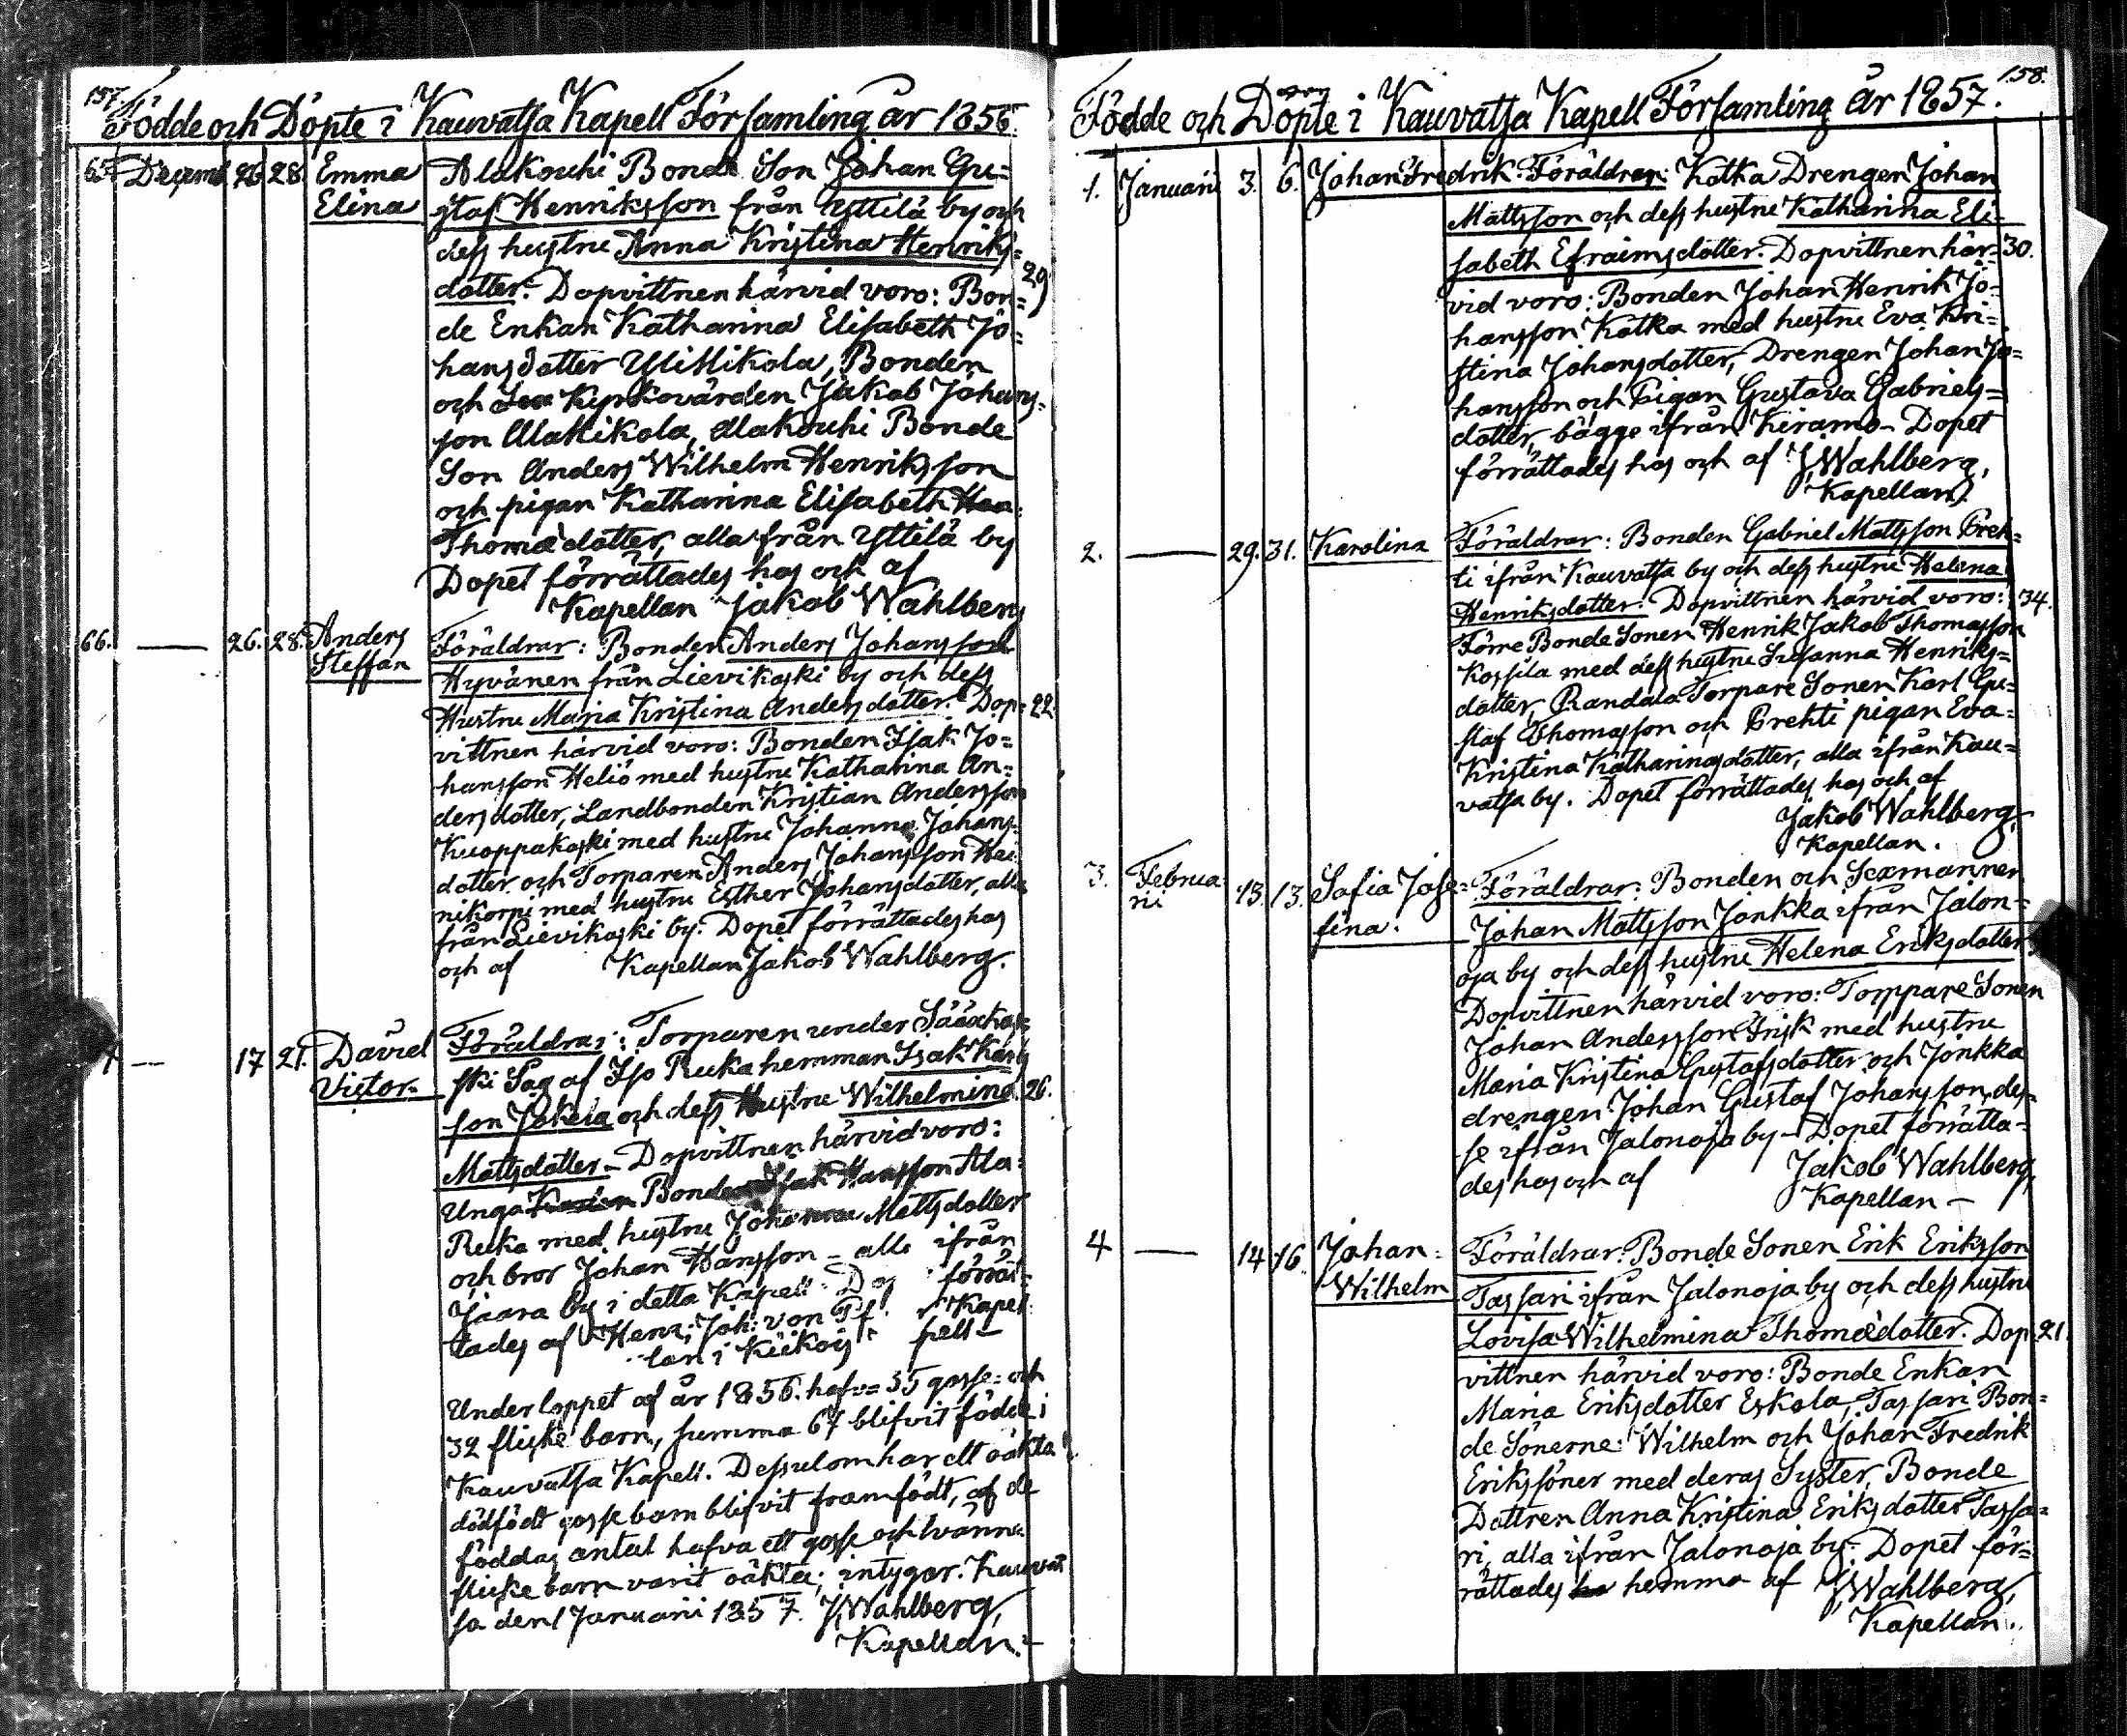 157.
Födde och Döpte i Kauvatsa Kapell Församling år 1856.
65. Decemb 26 28. Emma Elina
Alakouhi Bonde Son Johan Gu=
staf Henriksson från Yttilä by och
dess hustru Anna Kristina Henriks=
dotter. Dopvittnen härvid voro: Bon= 29
de Enkan Katharina Elisabeth Jo=
hansdotter Ylikikola, Bonden
och Kyrkovärden Jakob Johans=
son Alakikola, Alakouhi Bonde
Son Anders Wilhelm Henriksson
och pigan Katharina Elisabeth
Thomædotter, alla från Yttilä by
Dopet förrättades hos och af
Kapellan Jakob Wahlberg
66. — 26. 28. Anders Steffan
Föräldrar: Bonden Anders Johansson
Hyvänen från Lievikoski by och dess
Hustru Maja Kristina Andersdotter. Dop= 22.
vittnen härvid voro: Bonden Isak Jo=
hansson Heliö med hustru Katharina An=
dersdotter, Landbonden Kristian Andersson
Kuoppakoski med hustru Johanna Johans=
dotter och Torparen Anders Johansson Hei
nikorpi med hustru Esther Johansdotter, alla
från Lievikoski by. Dopet förrättades hos
och af Kapellan Jakob Wahlberg.
— 17 21. David Victor.
Föräldrar: Torparen under Sääxkos=
ski Såg af Iso Ruka hemman Isak Karls
son Jokela och dess Hustru Wilhelmina 26.
Mattsdotter — Dopvittnen härvid voro:
Unga Bonden Isak Hansson Ala=
Ruka med hustru Johanna Mattsdotter
och bror Johan Hansson — alla ifrån
Jaara by i detta Kapell. Dop förrät=
tades af Henr: Joh: von Pf Kapel
lan i Kiikois pell —
Under loppet af år 1856. hafva 35 gosse= och
32 flicke barn, summa 67 blifvit födde i
Kauvatsa Kapell. Dessutom har ett oäkta
dödfödt gosse barn blifvit framfödt, af de
föddas antal hafva ett gosse och tvänne
flicke barn varit oäkta; intygar. Kauvat
sa den 1 Januarii 1857. J. Wahlberg,
Kapellan.
158.
Födde och Döpte i Kauvatsa Kapell Församling år 1857.
1. Januarii 3. 6. Johan Fredrik
Föräldrar: Kotka Drengen Johan
Mattsson och dess hustru Katharina Eli=
sabeth Efraimsdotter. Dopvittnen här= 30.
vid voro: Bonden Johan Henrik Jo=
hansson Kotka med hustru Eva Kri=
stina Johansdotter, Drengen Johan Jo=
hansson och Pigan Gustava Gabriels=
dotter, bägge ifrån Keramo — Dopet
förrättades hos och af J. Wahlberg,
Kapellan.
2. — 29. 31. Karolina
Föräldrar: Bonden Gabriel Mattsson Preh=
ti ifrån Kauvatsa by och dess hustru Helena
Henriksdotter. Dopvittnen härvid voro: 34.
Förre Bonde Sonen Henrik Jakob Thomasson
Kossila med dess hustru Susanna Henriks=
dotter, Randala Torpare Sonen Karl Gu=
staf Thomasson och Prehti pigan Eva
Kristina Katharinasdotter, alla ifrån Kau=
vatsa by. Dopet förrättades hos och af
Jakob Wahlberg,
Kapellan.
3. Februarii 13. 13. Sofia Josefina.
Föräldrar: Bonden och Sexmannen
Johan Mattsson Jonkka ifrån Jalon=
oja by och dess hustru Helena Eriksdotter
Dopvittnen härvid voro: Torppare Sonen
Johan Andersson Frisk med hustru
Maria Kristina Gustafsdotter och Jonkka
drengen Johan Gustaf Johansson, des=
se ifrån Jalonoja by — Dopet förrätta=
des hos och af Jakob Wahlberg,
Kapellan —
4 — 14 16. Johan Wilhelm
Föräldrar: Bonde Sonen Erik Eriksson
Tassari ifrån Jalonoja by och dess hustru
Lovisa Wilhelmina Thomædotter. Dop= 21.
vittnen härvid voro: Bonde Enkan
Maria Eriksdotter Eskola, Tassari Bon=
de Sönerne: Wilhelm och Johan Fredrik
Erikssöner med deras Syster, Bonde
Dottren Anna Kristina Eriksdotter Tassa=
ri, alla ifrån Jalonoja by. Dopet för=
rättades hemma af J. Wahlberg,
Kapellan.